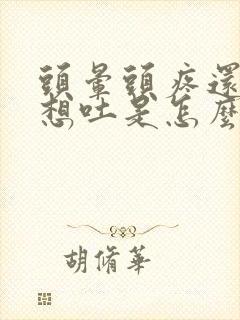 頭暈頭疼還
想吐是怎麼
胡脩華